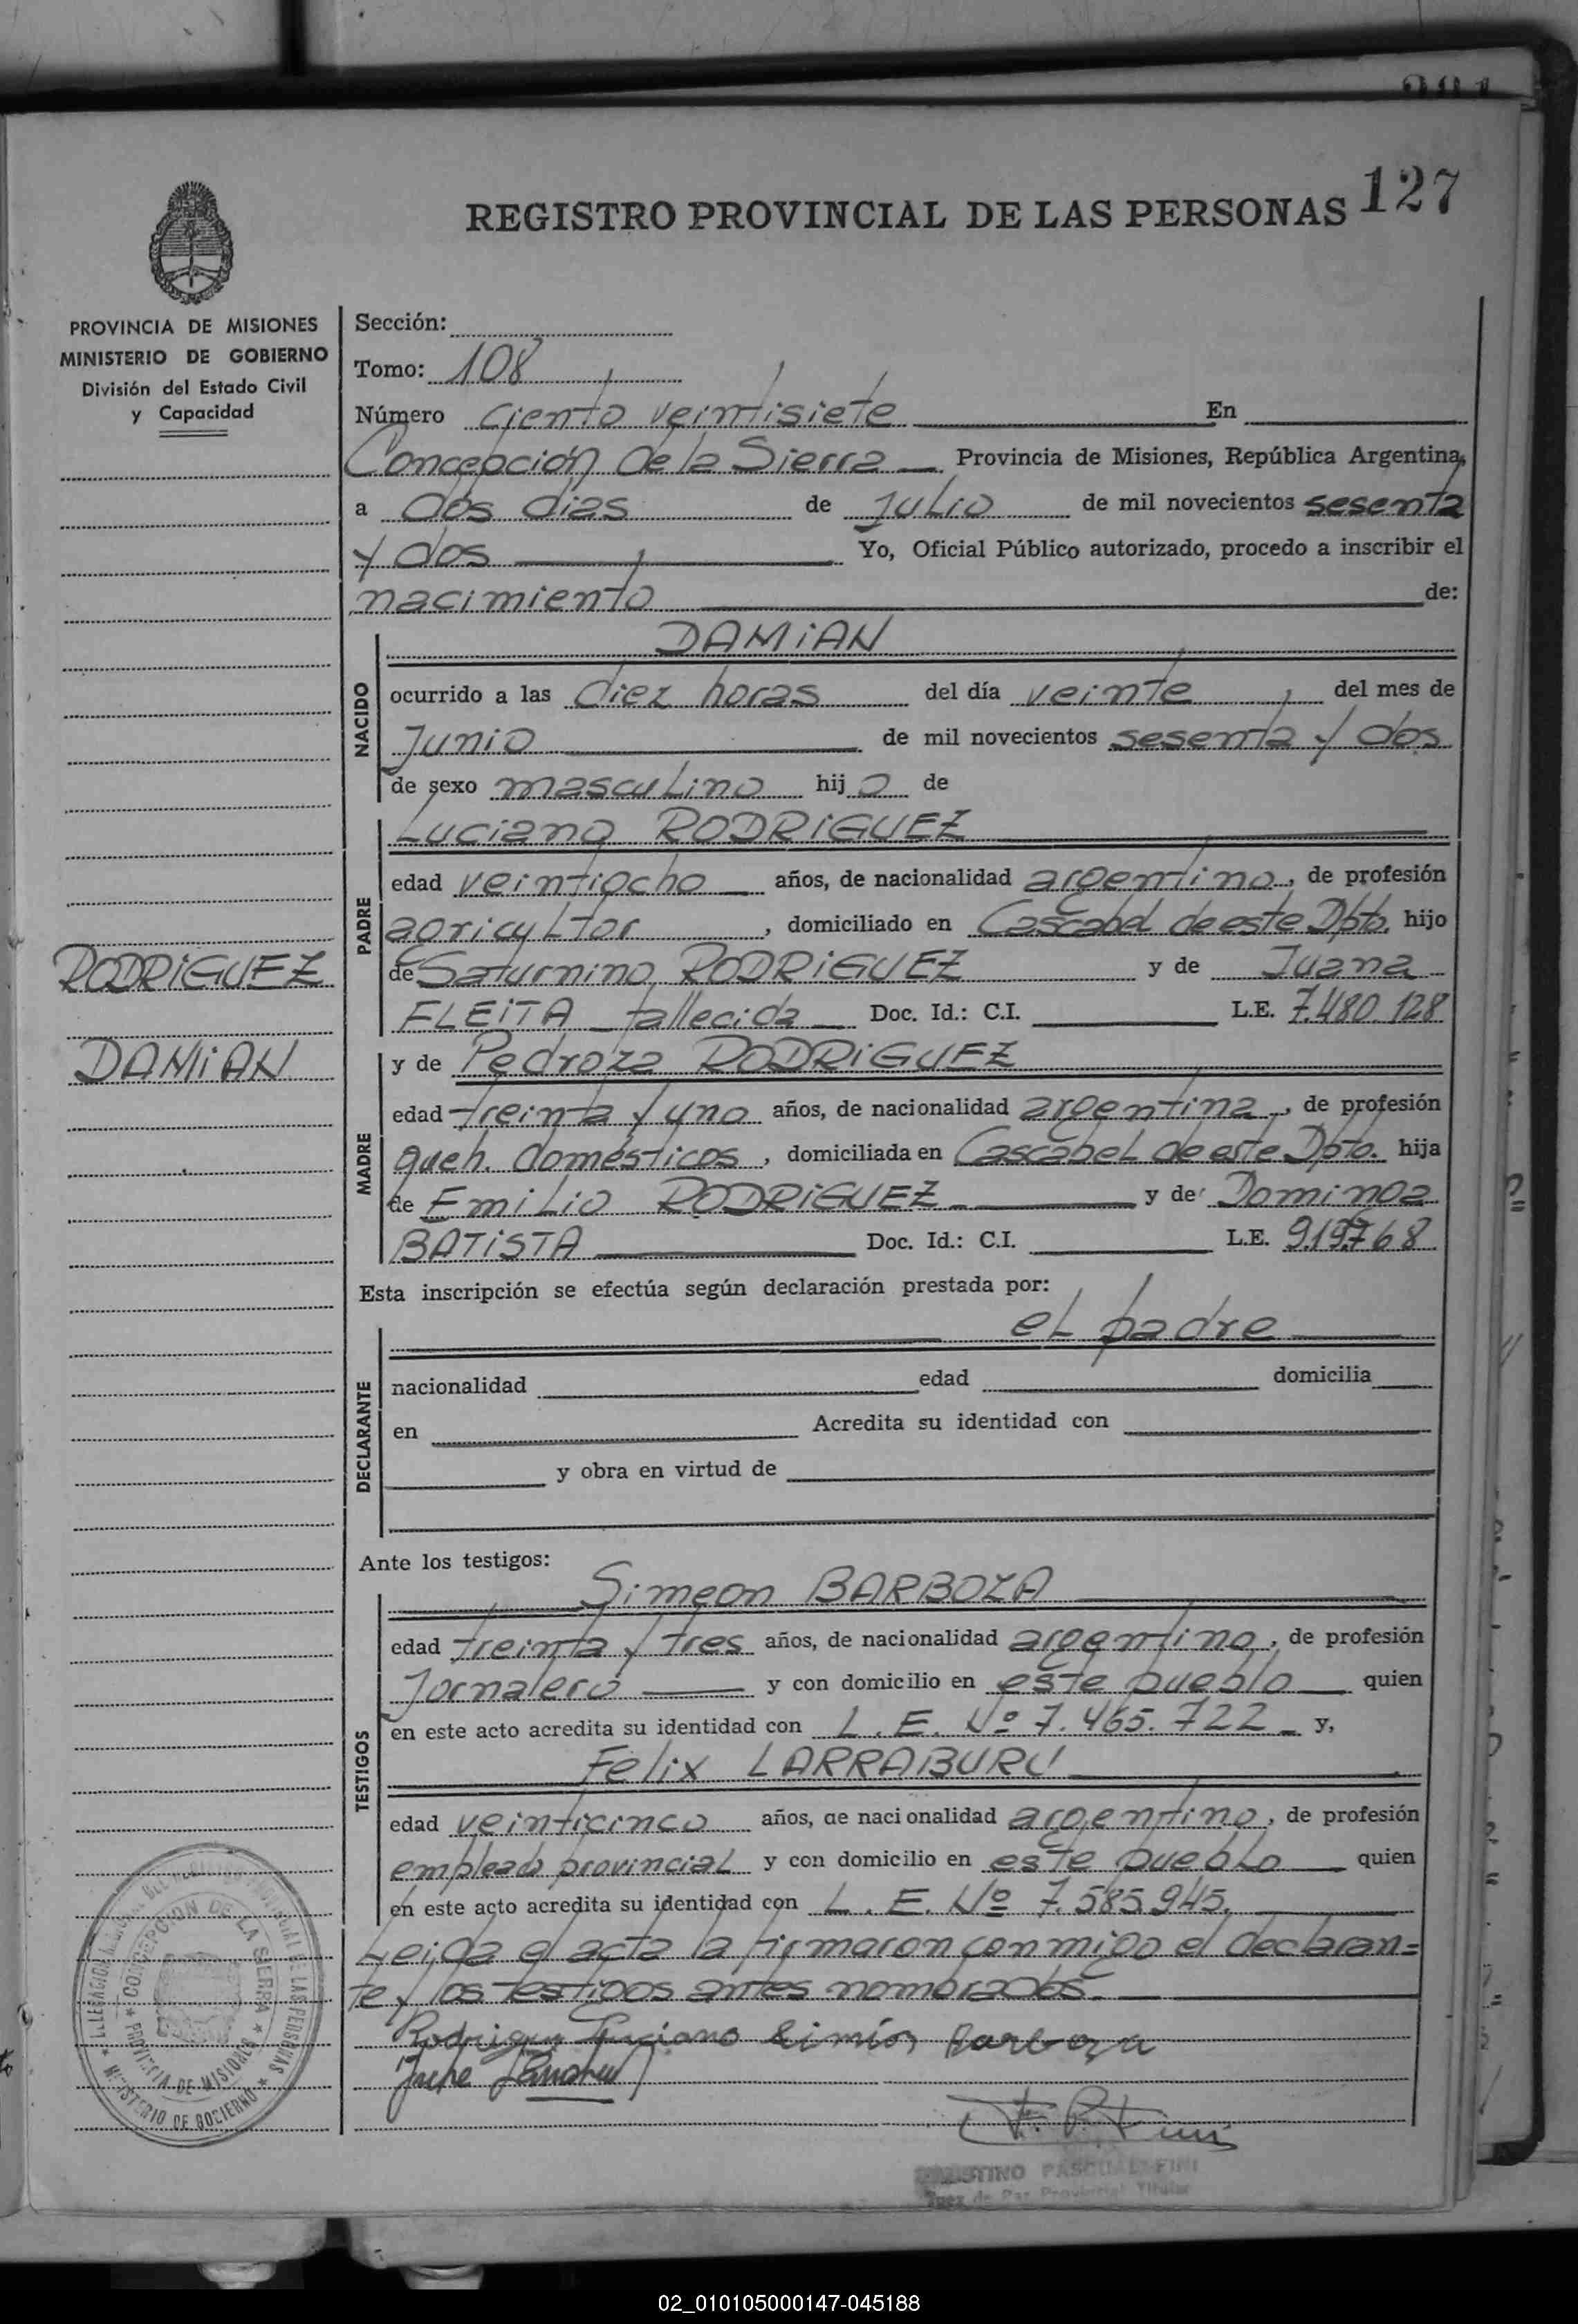 REGISTRO PROVINCIAL DE LAS PERSONAS 127
PROVINCIA DE MISIONES
MINISTERIO DE GOBIERNO
División del Estado Civil
y Capacidad
RODRIGUEZ
DAMIAN
Sección:
Tomo: 108
Número ciento veintisiete En
Concepción de la Sierra Provincia de Misiones, República Argentina,
a dos dias de Julio de mil novecientos sesenta
y dos Yo, Oficial Público autorizado, procedo a inscribir el
nacimiento de:
NACIDO
DAMIAN
ocurrido a las diez horas del día veinte del mes de
Junio de mil novecientos sesenta y dos
de sexo masculino hijo de
PADRE
Luciano RODRIGUEZ
edad veintiocho años, de nacionalidad argentino, de profesión
agricultor, domiciliado en Cascabel de este Dpto. hijo
de Saturnino RODRIGUEZ y de Juana
FLEITA fallecida Doc. Id.: C.I. L.E. 7.480.128
MADRE
y de Pedroza RODRIGUEZ
edad treinta y uno años, de nacionalidad argentina, de profesión
queh. domésticos, domiciliada en Cascabel de este Dpto. hija
de Emilio RODRIGUEZ y de Dominga
BATISTA Doc. Id.: C.I. L.E.
Esta inscripción se efectúa según declaración prestada por:
DECLARANTE
el padre
nacionalidad edad domicilia
en Acredita su identidad con
y obra en virtud de
Ante los testigos:
TESTIGOS
Simeon BARBOZA
edad treinta y tres años, de nacionalidad argentino, de profesión
Jornalero y con domicilio en este pueblo quien
en este acto acredita su identidad con L. E. Nº 7.465.722 y,
Felix LARRABURU
edad veinticinco años, de nacionalidad argentino, de profesión
empleado provincial y con domicilio en este pueblo quien
en este acto acredita su identidad con L. E. Nº 7.585.945.
Leida el acta la firmaron conmigo el declaran=
te y los testigos antes nombrados.
Rodriguez Luciano Barboza
PASCUAL FINI
Juez de Paz Provincial Titular
CONCEPCION DE LA SIERRA
PROVINCIA DE MISIONES
MINISTERIO DE GOBIERNO
02_010105000147-045188